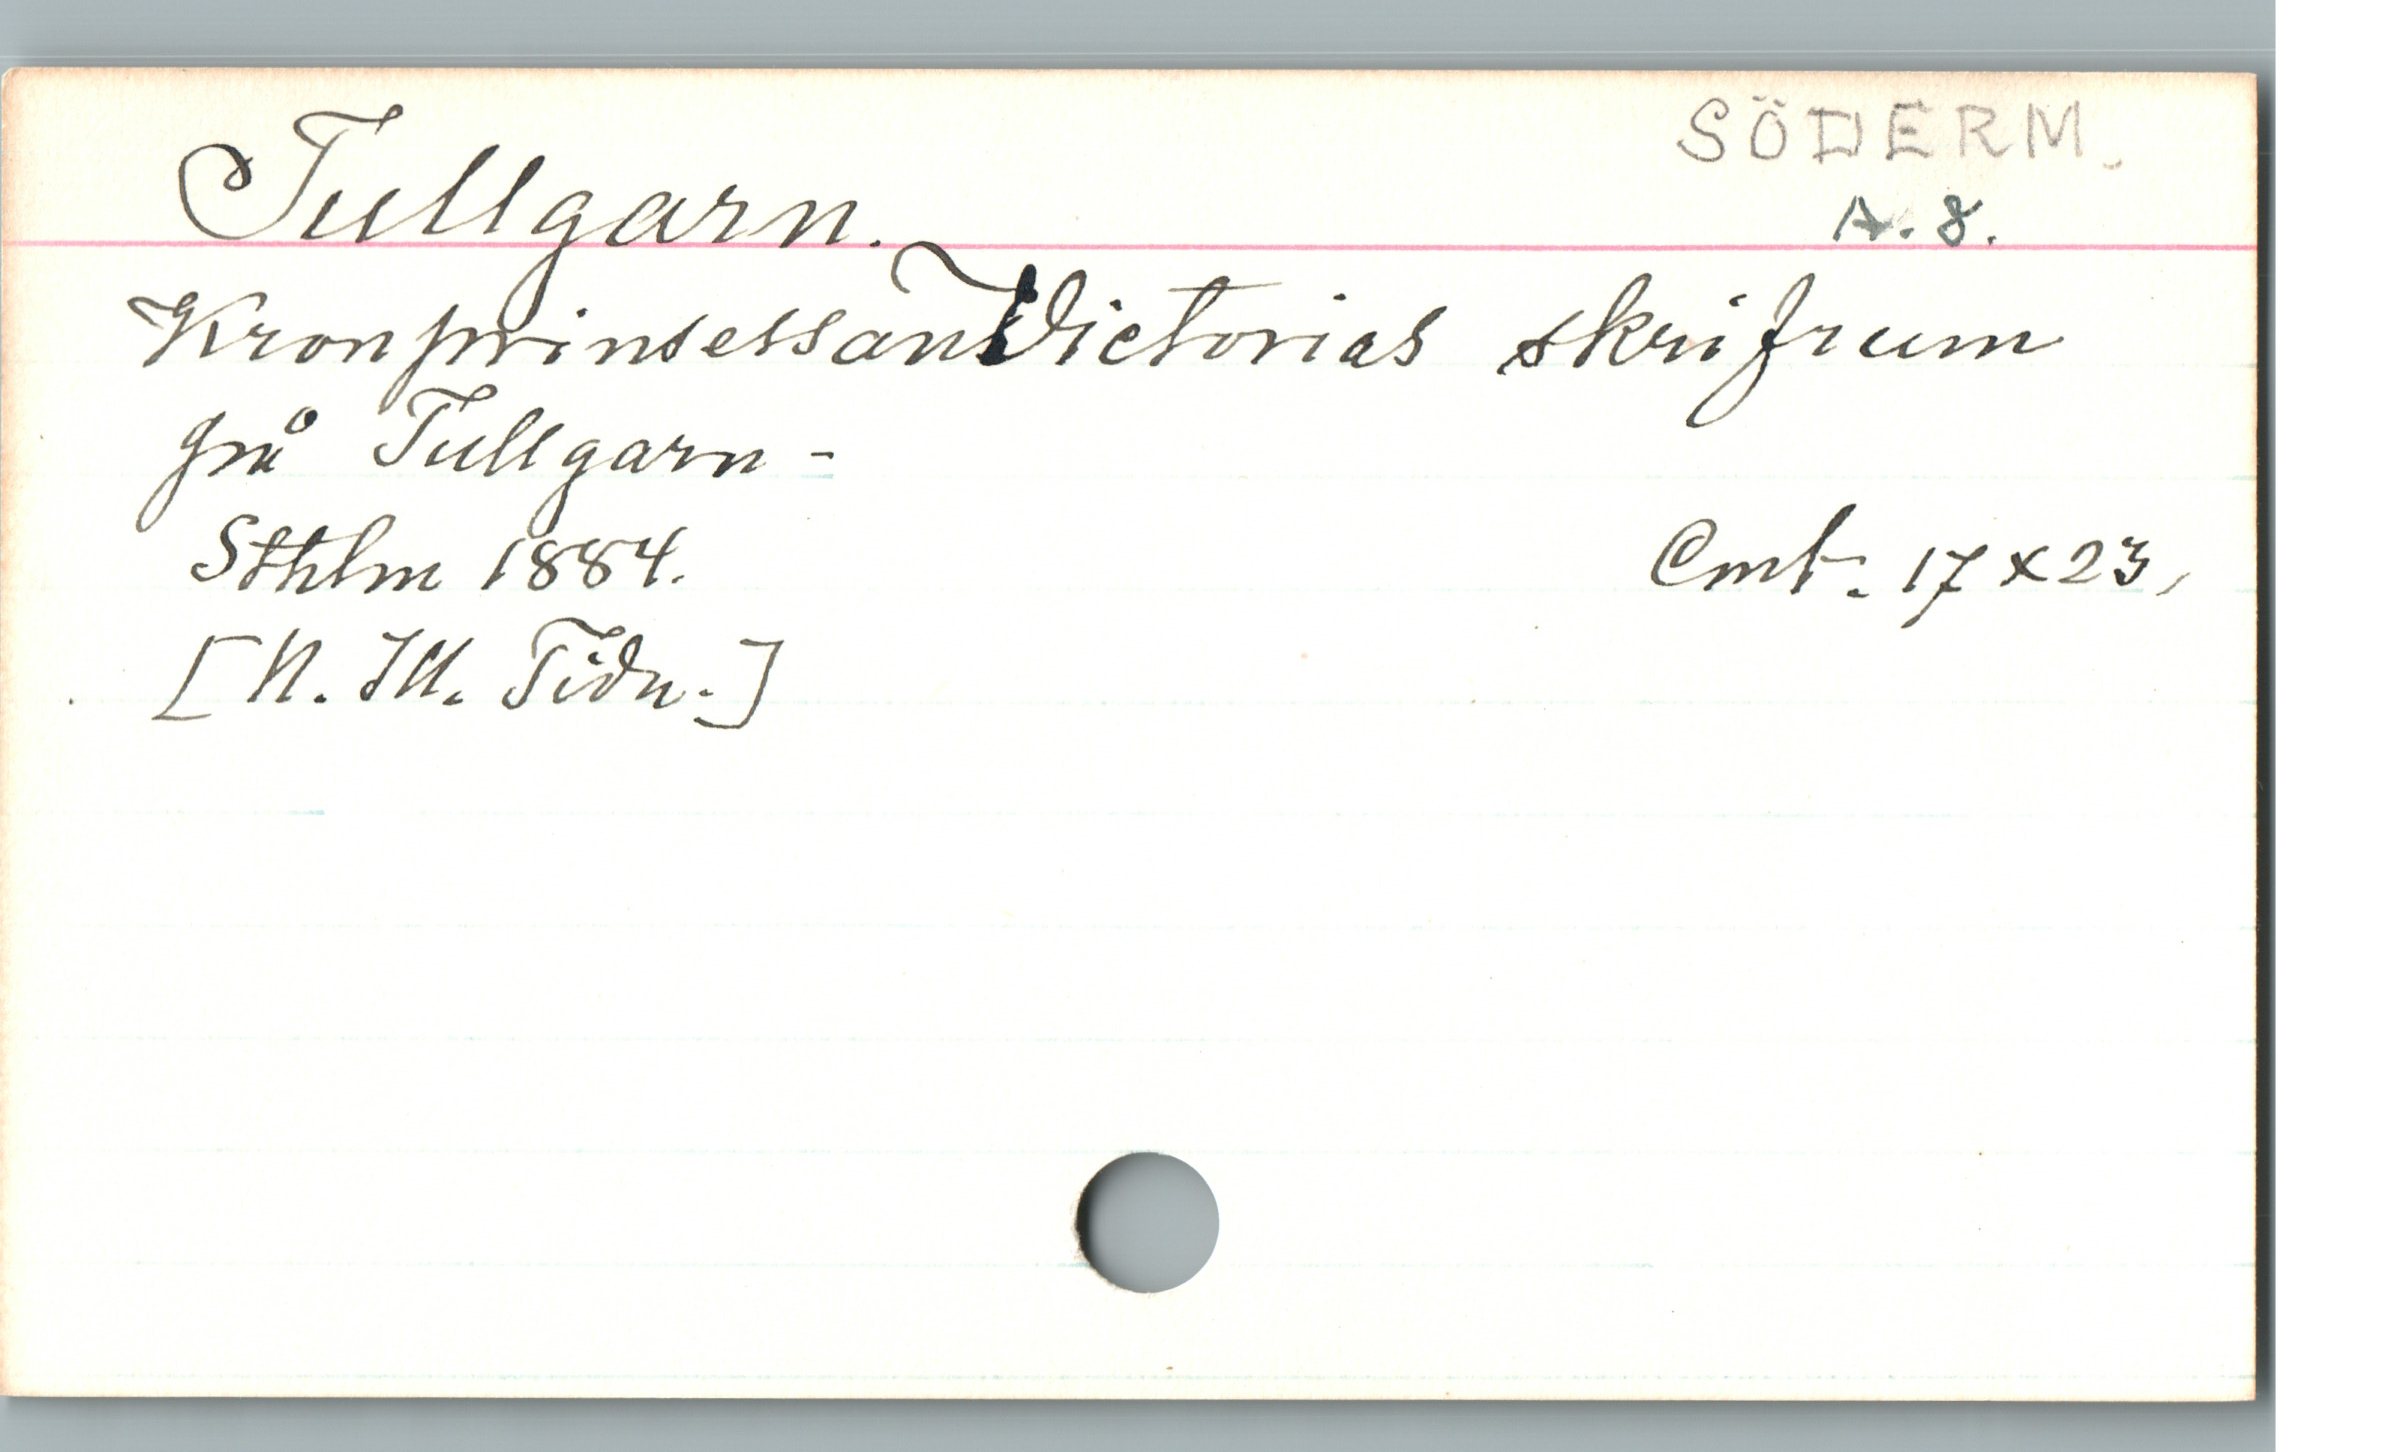 SÖDERM.
Tullgarn.
A. 8.
Kronprinsessan Victorias skrifrum
på Tullgarn -
Sthlm 1884.
Cmt. 17 x 23,
[N. Ill. Tidn.]